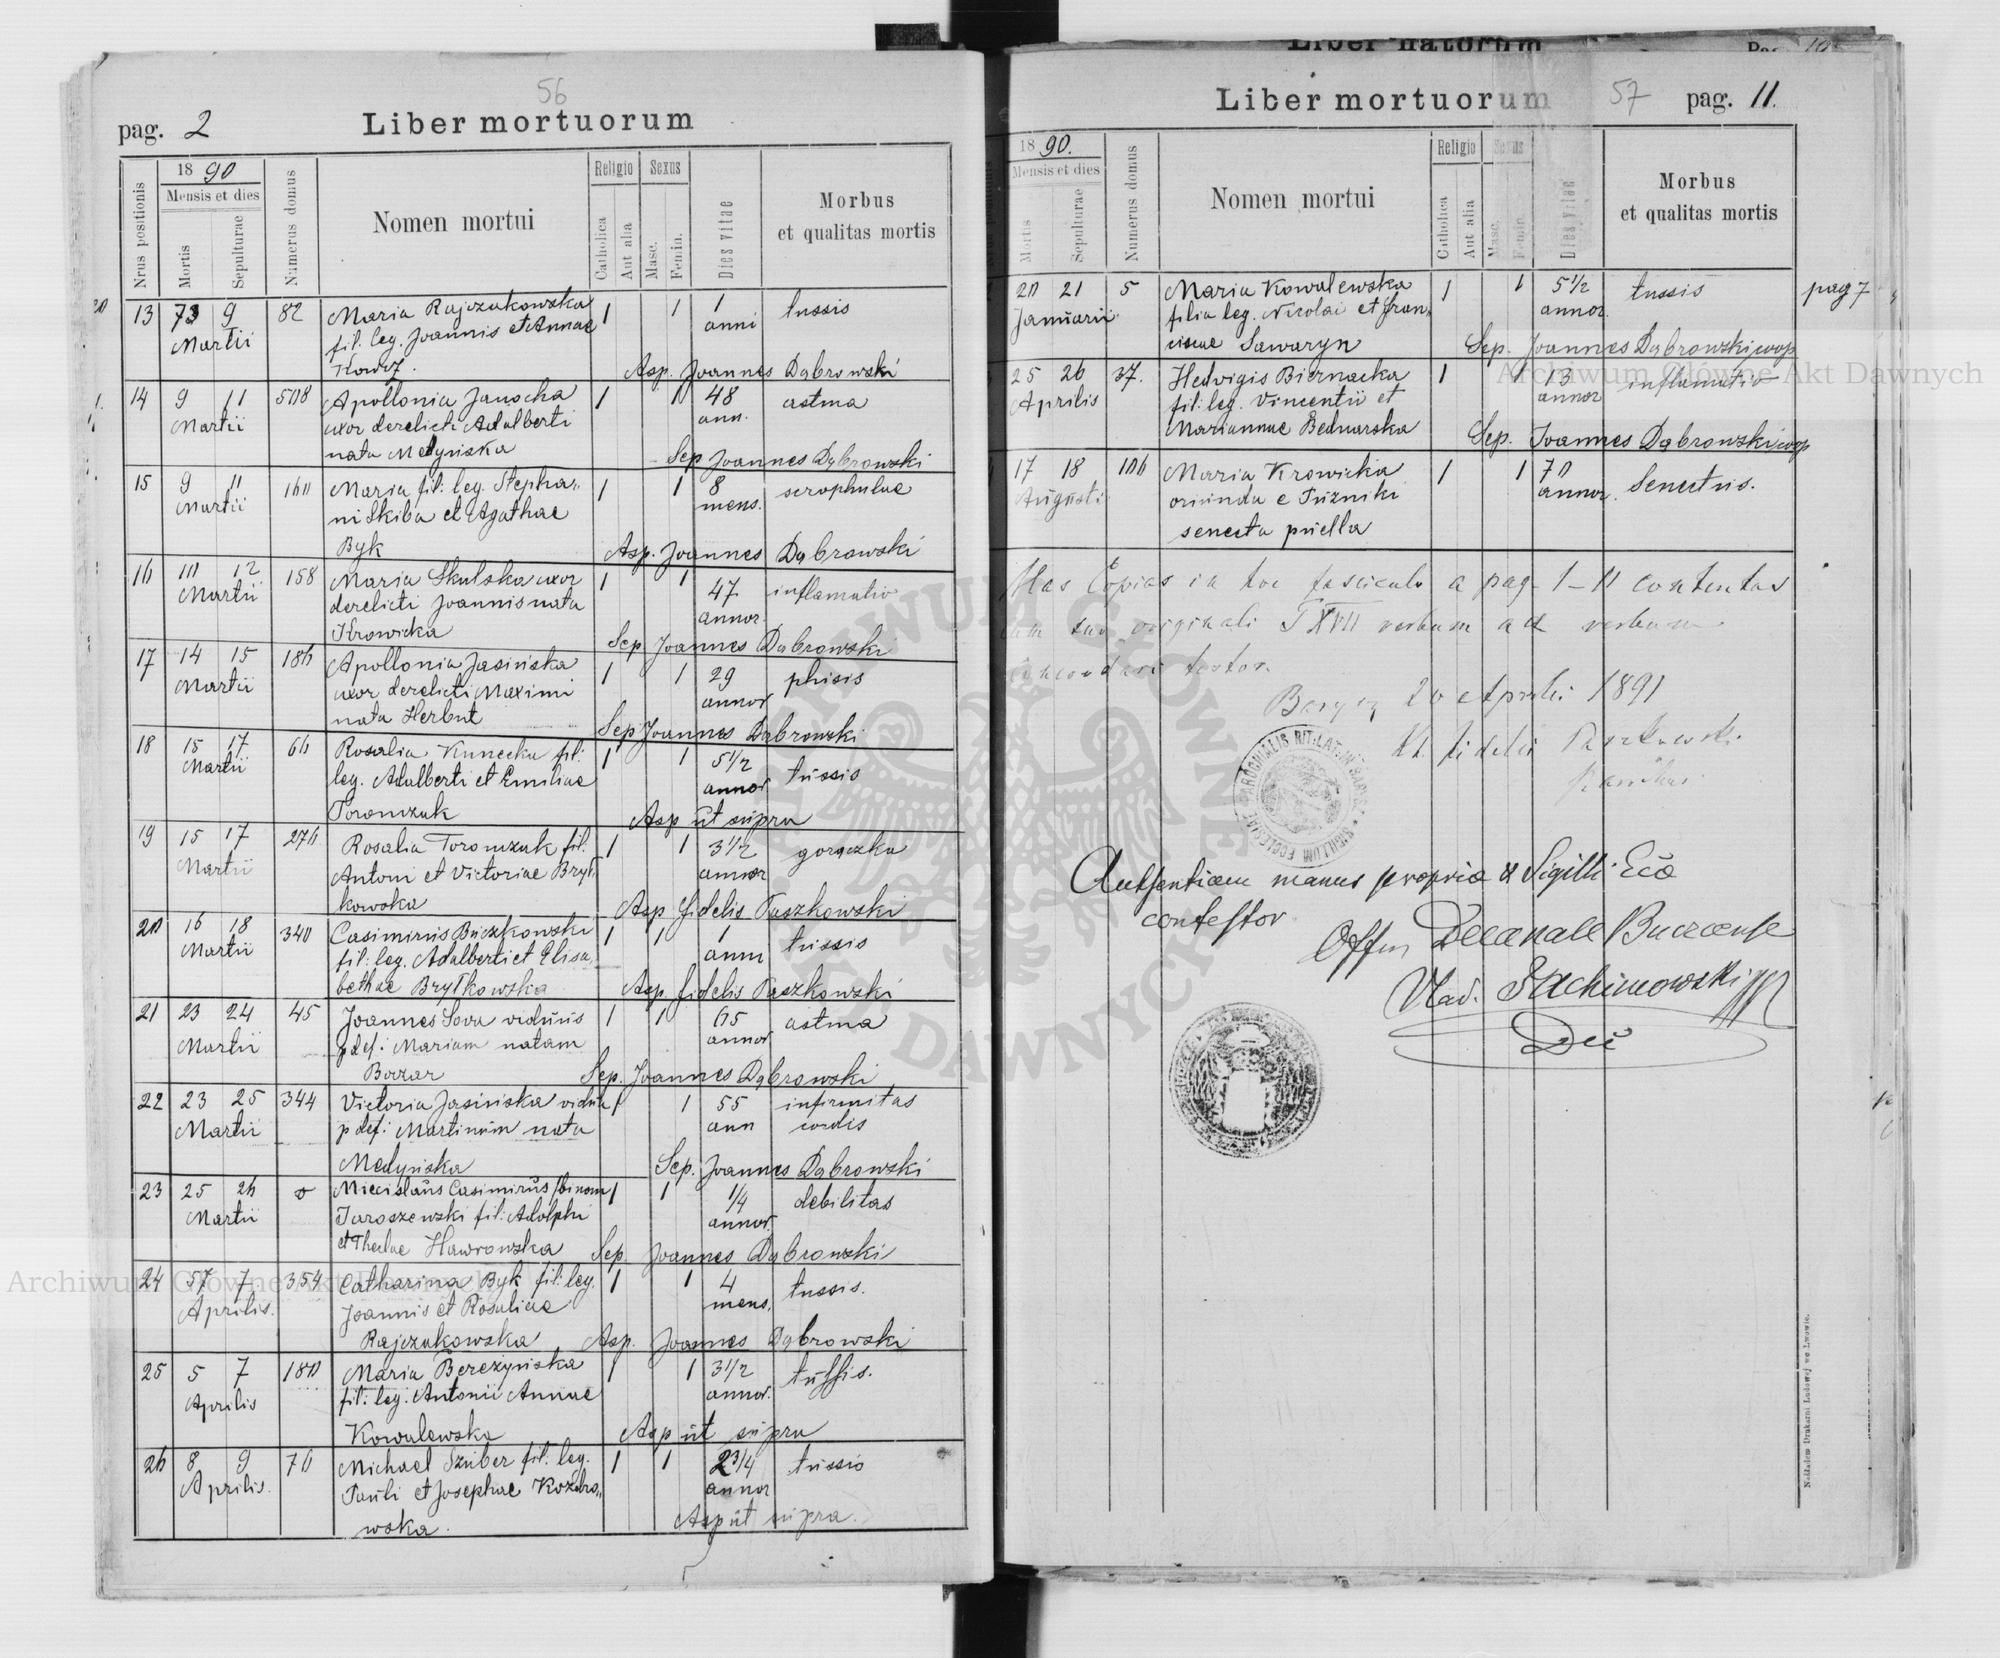 56
pag. 2
Liber mortuorum
Nrus positionis
18 90
Mensis et dies
Mortis
Sepulturae
Numerus domus
Nomen mortui
Religio
Catholica
Aut alia
Sexus
Masc.
Femin.
Dies vitae
Morbus
et qualitas mortis
13 73 9 82 Maria Rajczakowska 1 1 1 tussis
Martii fil: leg. Joannis et Annae anni
Asp. Joannes Dąbrowski
14 9 11 508 Apollonia Janocha 1 1 48 astma
Martii uxor derelicti Adalberti ann.
nata Medyńska Sep Joannes Dąbrowski
15 9 11 160 Maria fil: leg. Stepha„ 1 1 8 scrophulae
Martii ni Skiba et Agathae mens.
Byk Asp. Joannes Dąbrowski
16 10 12 158 Maria Skulska uxor 1 1 47 inflamatio
Martii derelicti Joannis nata annor
Krowicka Sep Joannes Dąbrowski
17 14 15 186 Apollonia Jasińska 1 1 29 phisis
Martii uxor derelicti Maximi annor
nata Herbut Sep Joannes Dąbrowski
18 15 17 66 Rosalia Kunecka fil: 1 1 5½ tussis
Martii leg. Adalberti et Emiliae annor
Toromczuk Asp ut supra
19 15 17 276 Rosalia Toromczuk fil: 1 1 3½ gorączka
Martii Antoni et Victoriae Bryt„ annor
kowska Asp fidelis Paszkowski
20 16 18 340 Casimirus Buczkowski 1 1 1 tussis
Martii fil: leg. Adalberti et Elisa„ anni
bethae Brytkowska Asp. fidelis Paszkowski
21 23 24 45 Joannes Sova viduus 1 1 65 astma
Martii p def: Mariam natam annor
Sep. Joannes Dąbrowski
22 23 25 344 Victoria Jasińska vidua 1 1 55 infirmitas
Martii p def: Martinum nata ann cordis
Medyńska Sep. Joannes Dąbrowski
23 25 26 Miecislaus Casimirus /binom/ 1 1 ¼ debilitas
Martii Jaroszewski fil: Adolphi annor.
et Theclae Hawrowska Sep. Joannes Dąbrowski
24 57 7 354 Catharina Byk fil: leg. 1 1 4 tussis.
Aprilis. Joannis et Rosaliae mens.
Rajczakowska Asp. Joannes Dąbrowski
25 5 7 180 Maria Bereżyńska 1 1 3½ tussis.
Aprilis fil: leg. Antonii Annae annor.
Kowalewska Asp ut supra
26 8 9 76 Michael Szuber fil: leg. 1 1 2¾ tussis
Aprilis. Pauli et Josephae Kozdro„ annor
wska. Asp ut supra.
Liber natorum
57
Liber mortuorum
pag. 11.
18 90.
Mensis et dies
Mortis
Sepulturae
Numerus domus
Nomen mortui
Religio
Catholica
Aut alia
Sexus
Masc.
Femin.
Dies vitae
Morbus
et qualitas mortis
20 21 5 Maria Kowalewska 1 1 5½ tussis pag 7
Januarii filia leg. Nicolai et Fran„ annor.
ciscae Sawaryn Sep. Joannes Dąbrowski coop
25 26 37. Hedvigis Biernacka 1 1 13 inflamatio
Aprilis fil: leg. Vincentii et annor
Mariannae Bednarska Sep. Joannes Dąbrowski coop
17 18 106 Maria Krowicka 1 1 70 Senectus.
Augusti oriunda e Puźniki annor.
senecta puella
Has Copias in hoc fasciculo a pag. 1–11 contentas
cum suo originali T XVII verbum ad verbum
concordare testor.
20 Aprilis 1891
X. fidelis Paszkowski
parochus
Authenticam manus propria & Sigilli
contestor
Decanale Buczacense
Vlad.
Dec
Nakładem Drukarni Ludowej we Lwowie.
Archiwum Główne Akt Dawnych
Archiwum Główne Akt Dawnych
ARCHIWUM GŁÓWNE AKT DAWNYCH